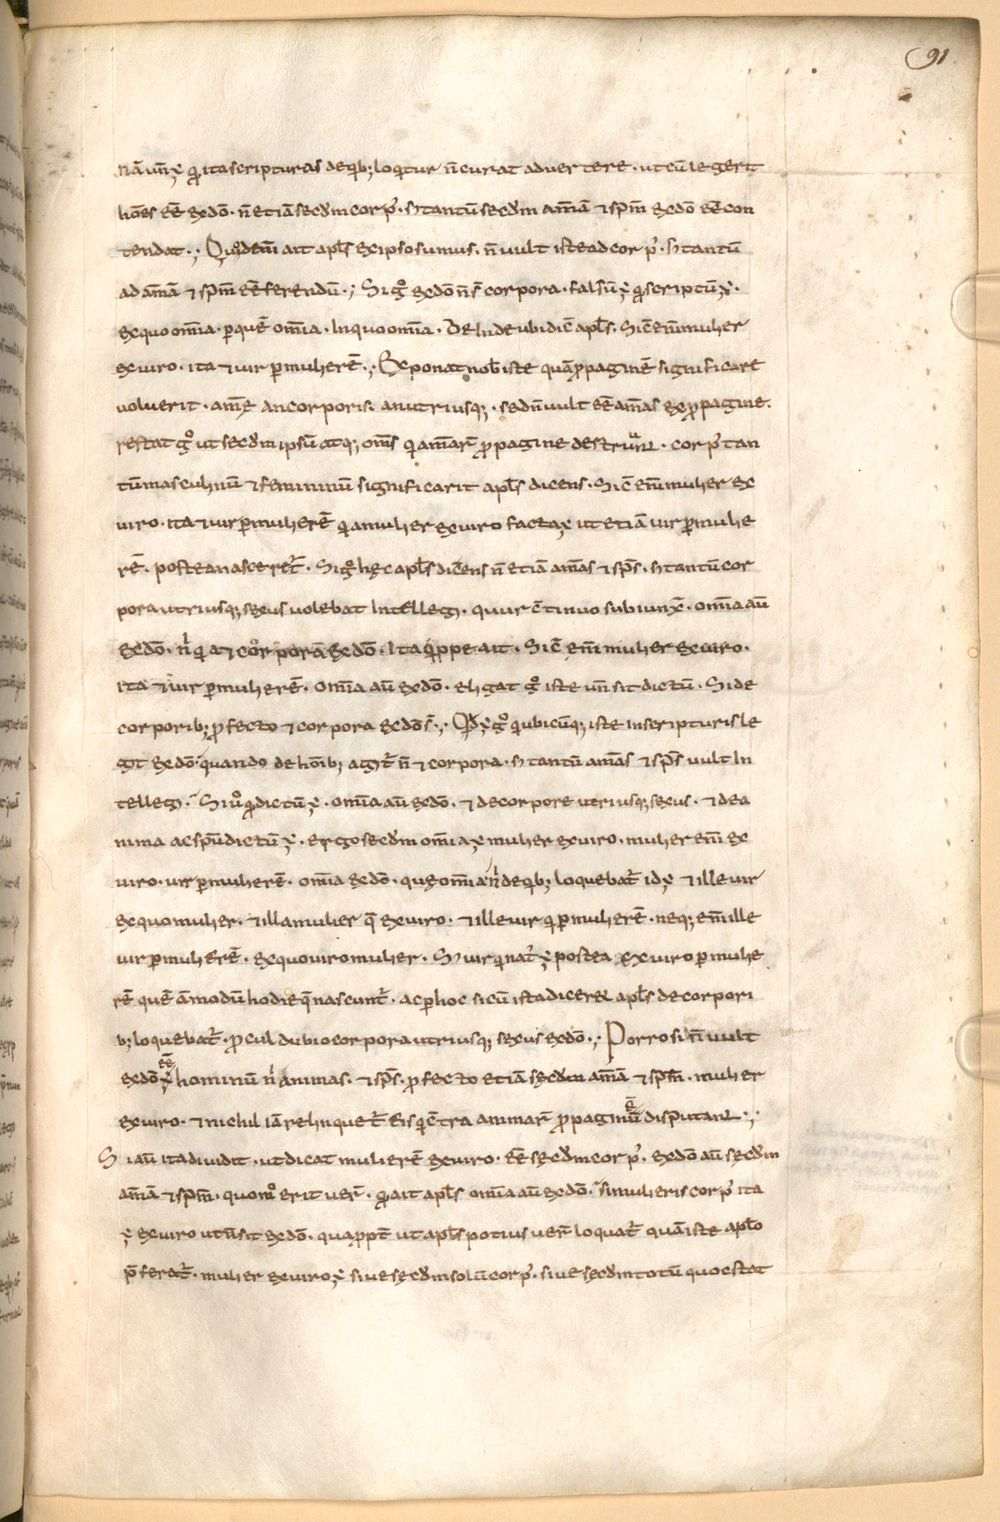 91
nā un̄ ÷ q̄ ita scripturas de qib; loq̇tur n̄ curat advertere · ut cū legerit
hōes eē ex dō · n̄ etiā secdm corp' · s; tantū secdm am̄ā & spm̄ ex dō eē con
tendat ·; Quod em̄ ait apls ex ipso sumus · n̄ vult iste ad corp' · s; tantū
ad am̄ā & spm̄ eē ferendū ·; Si gº ex dō n̄ s̄ corpora · falsū ÷ q̄ scriptū ÷ ·
ex quo om̄ia · p quē om̄ia · In quo om̄ia · Deinde ubi dic̄ apls · Sic̄ em̄ mulier
ex viro · ita & vir p mulierē ·; Exponat nob iste quā ppaginē significare
voluerit · am̄e an corporis · an utriusq; · sed n̄ vult eē am̄as ex ppagine ·
restat gº ut secdm ipsū atq; om̄s qi am̄ar̄ ppagine destruunt · corp' tan
tū masculinū & femininū significarit apls dicens · Sic̄ em̄ mulier ex
viro · ita & vir p mulierē qi a mulier ex viro facta ÷ ut etiā vir p mulie
rē · postea nasceret̄ · Si gº hęc apls dicens n̄ etiā am̄as & sp̄s · s; tantū cor
pora utriusq; sexus volebat Intelleg; · qur c̄tinuo subiunx̄ · om̄ia aū
ex dō · n̄ qi a & corpora ex dō · Ita qippe ait · Sic̄ em̄ mulier ex viro ·
ita & vir p mulierē · om̄ia aū ex dō · eligat gº iste un̄ sit dictū · Si de
corporib; pfecto & corpora ex dō s̄ ·; Qd ÷ gº q ubicūq; iste In scripturis le
git ex dō quando de hōib; agit̄ n̄ & corpora · s; tantū am̄as & sp̄s vult In
telleg; · Si vº q̄ dictū ÷ · om̄ia aū ex dō · & de corpore utriusq; sexus · & de a
nima ac spū dictū ÷ · ergo secdm om̄ia ÷ mulier ex viro · mulier em̄ ex
viro · vir p mulierē · om̄ia ex dō · quę om̄ia n̄ de qib; loquebat̄ id ÷ & ille vir
ex quo mulier · & illa mulier q̄ ex viro · & ille vir qi p mulierē · neq; em̄ ille
vir p mulierē · ex quo viro mulier · S; vir qi nat' ÷ postea ex viro p mulie
rē quē āmodū hodieq̄ nascunt̄ · ac p hoc si cū ista diceret apls de corpori
b; loquebat̄ · procul dubio corpora utriusq; sexus ex dō ·; Porro si n̄ vult
eē
ex dō ÷ hominū n̄ animas · & sp̄s · pfecto etiā secdm am̄ā & spm̄ · mulier
ex viro · & nichil iā relinquet̄ eis qi c̄tra animar̄ ppaginē disputant ·;
Si aū ita dividit · ut dicat mulierē ex viro · eē secdm corp' · ex dō aū secdm
am̄ā & spm̄ · quomº erit ver̄ · q̄ ait apls om̄ia aū ex dō · si mulieris corp' ita
÷ ex viro ut n̄ sit ex dō · quappt̄ ut apls potius ver̄ loquat̄ quā iste aplo
pferat̄ · mulier ex viro ÷ sive secdm solū corp' · sive secdm totū quo estat